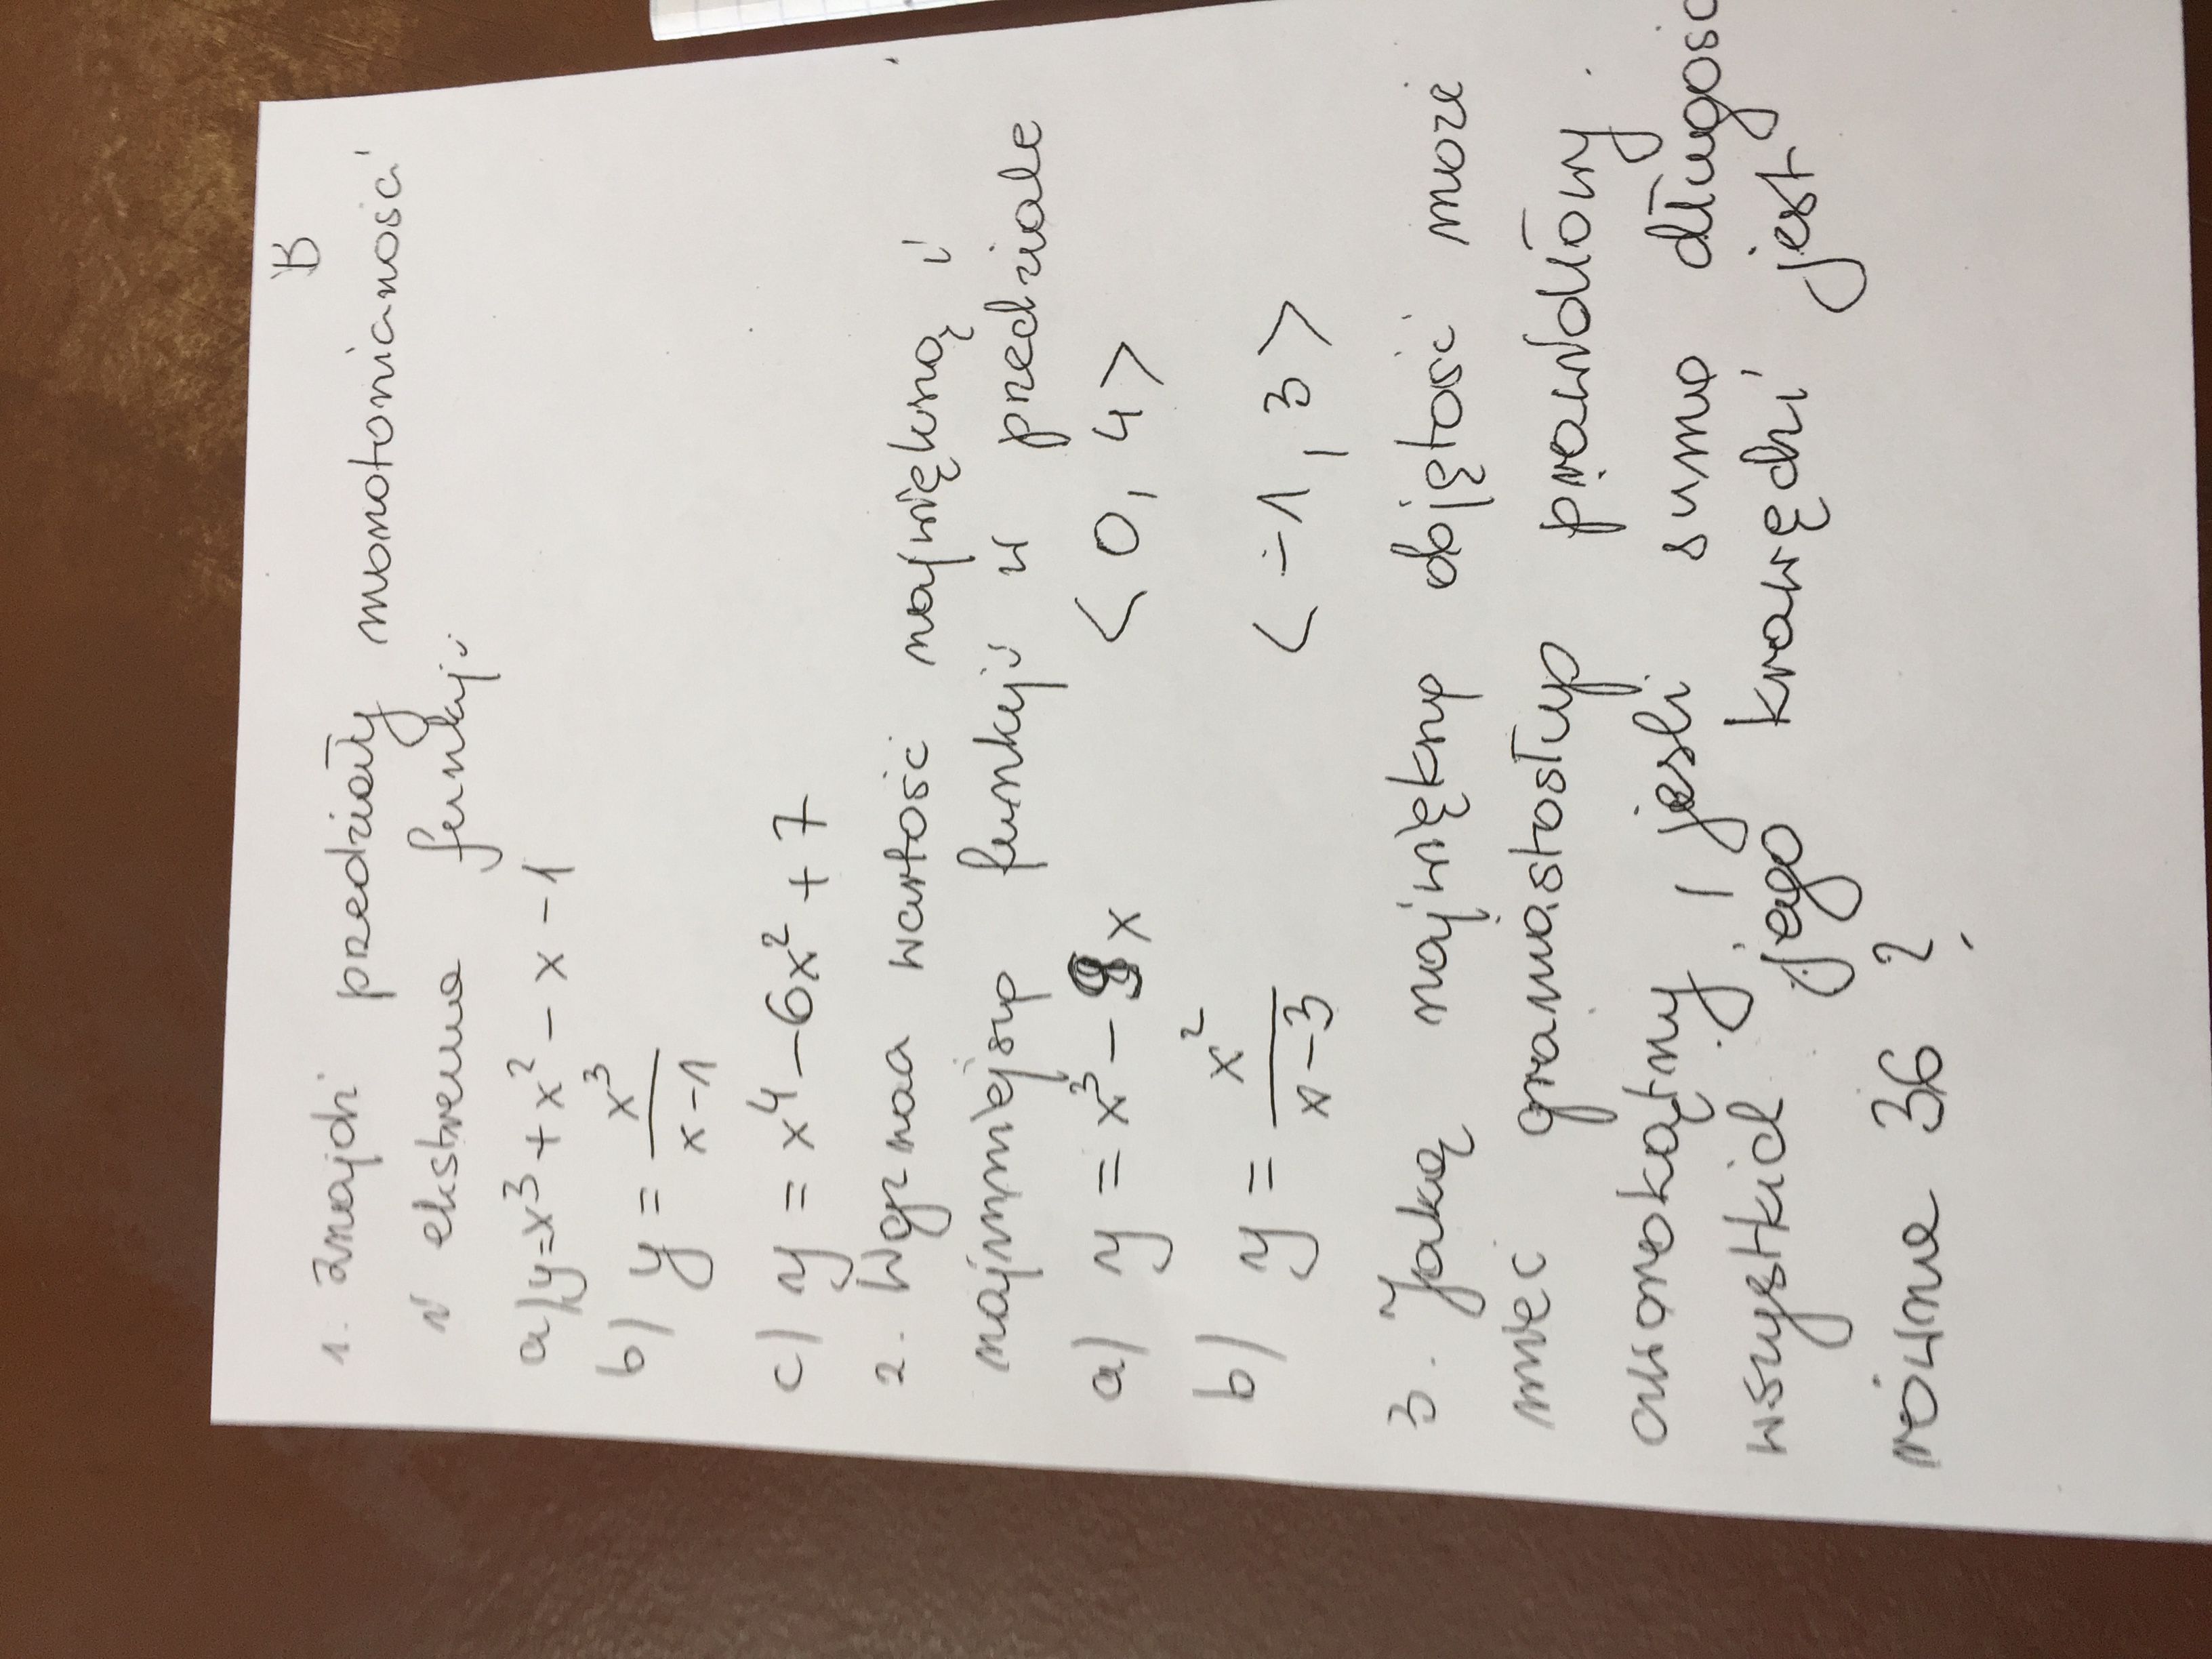 B
1. Znajdź przedziały monotoniczności
i ekstrema funkcji
a) y=x³+x²-x-1
b) y = x³/x-1
c) y = x⁴-6x²+7
2. Wyznacz wartość największą i
najmniejszą funkcji w przedziale
a) y = x³-9x <0, 4>
b) y = x²/x-3 <-1, 3>
3. Jaką największą objętość może
mieć graniastosłup prawidłowy
czworokątny, jeśli suma długości
wszystkich jego krawędzi jest
równa 36 ?